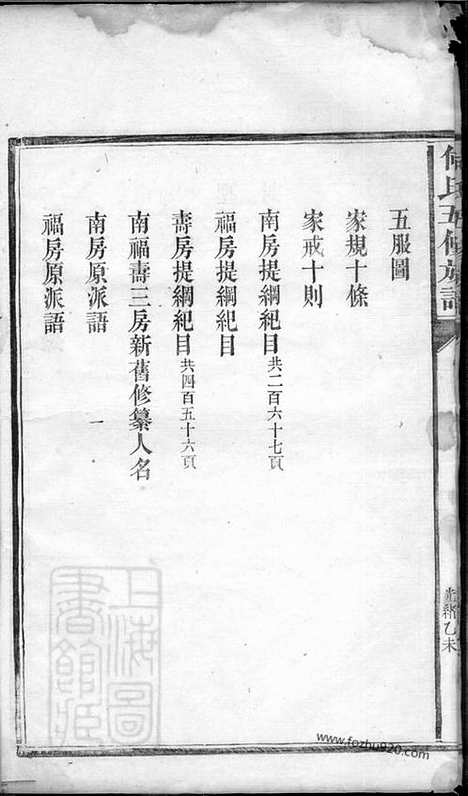 氏五修族譜
光緒乙未
五服圖
家規十條
家戒十則
南房提綱紀目共二百六十七頁
福房提綱紀目
壽房提綱紀目共四百五十六頁
南福壽三房新舊修纂人名
南房原派語 一
福房原派語
上海圖書館藏
www.fozhu920.com